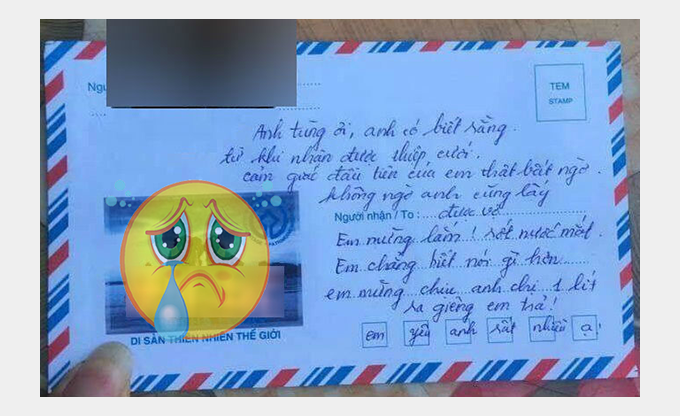 Ngư
TEM
STAMP
Anh tùng ơi, anh có biết rằng.
từ khi nhận được thiệp cưới.
cảm giác đầu tiên của em thật bất ngờ.
không ngờ anh cũng lấy
Người nhận / To : được vợ
Em mừng lắm! rớt nước mắt.
Em chẳng biết nói gì hơn
em mừng chiu anh chị 1 lít
ra giêng em trả!
em yêu anh rất nhiều ạ!
DI SẢN THIÊN NHIÊN THẾ GIỚI